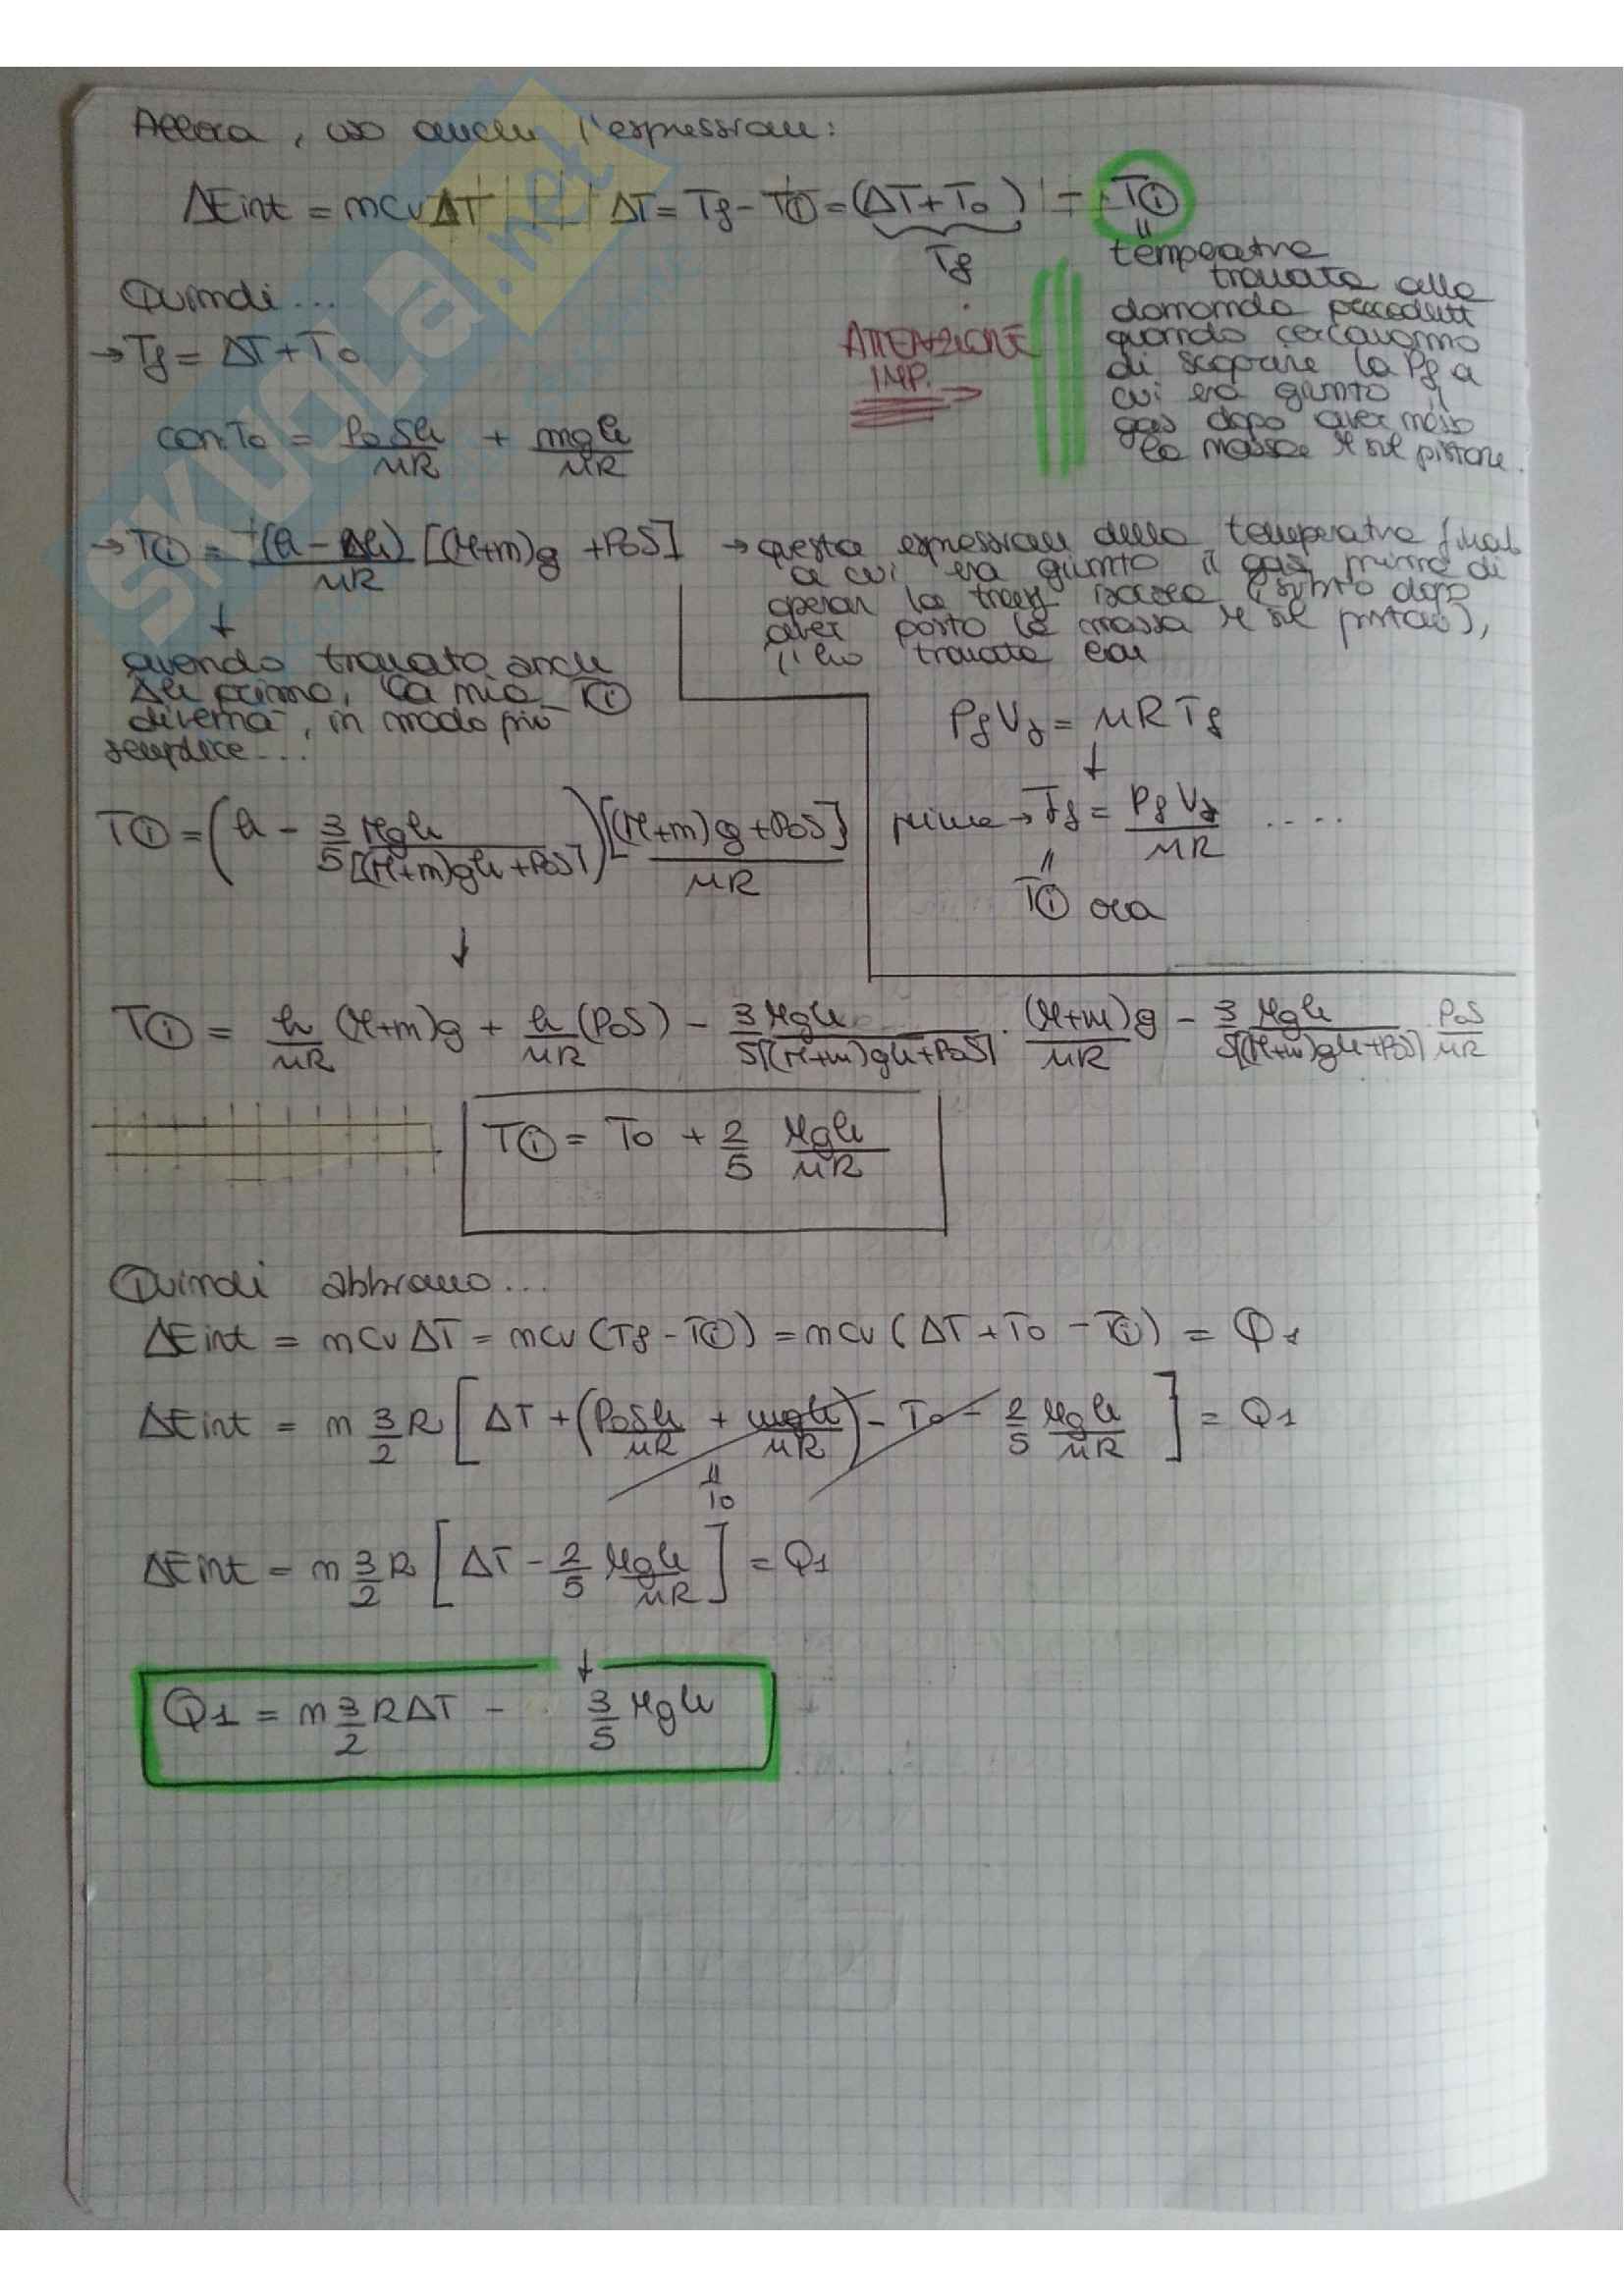 Allora, uso anche l'espressione:
ΔEint = mCvΔT ΔT = Tf - Ti = (ΔT + To) - Ti
Tf
temperatura
trovata alla
domanda precedente
quando cercavamo
di scoprire la Pf a
cui era giunto il
gas dopo aver messo
la massa M sul pistone.
ATTENZIONE
IMP.
Quindi...
→ Tf = ΔT + To
con To = PoSh/nR + mgh/nR
→ Ti = (h - Δh)/nR [(M+m)g + PoS] → questa espressione della temperatura finale
a cui era giunto il gas prima di
operare la trasf isocora (subito dopo
aver posto la massa M sul pistone),
l'ho trovata con
PfVf = nRTf
prima → Tf = PfVf/nR ....
Ti ora
avendo trovato anche
Δh prima, la mia Ti
diventa, in modo più
semplice...
Ti = (h - 3/5 Mgh/[(M+m)gh + PoS]) [(M+m)g + PoS]/nR
Ti = h/nR (M+m)g + h/nR (PoS) - 3Mgh/5[(M+m)gh+PoS] · (M+m)g/nR - 3/5 Mgh/[(M+m)gh+PoS] PoS/nR
Ti = To + 2/5 Mgh/nR
Quindi abbiamo...
ΔEint = mCvΔT = mCv(Tf - Ti) = mCv(ΔT + To - Ti) = Q1
ΔEint = m 3/2 R [ΔT + (PoSh/nR + mgh/nR) - To - 2/5 Mgh/nR] = Q1
To
ΔEint = m 3/2 R [ΔT - 2/5 Mgh/nR] = Q1
Q1 = m 3/2 RΔT - 3/5 Mgh
SKUOLa.net